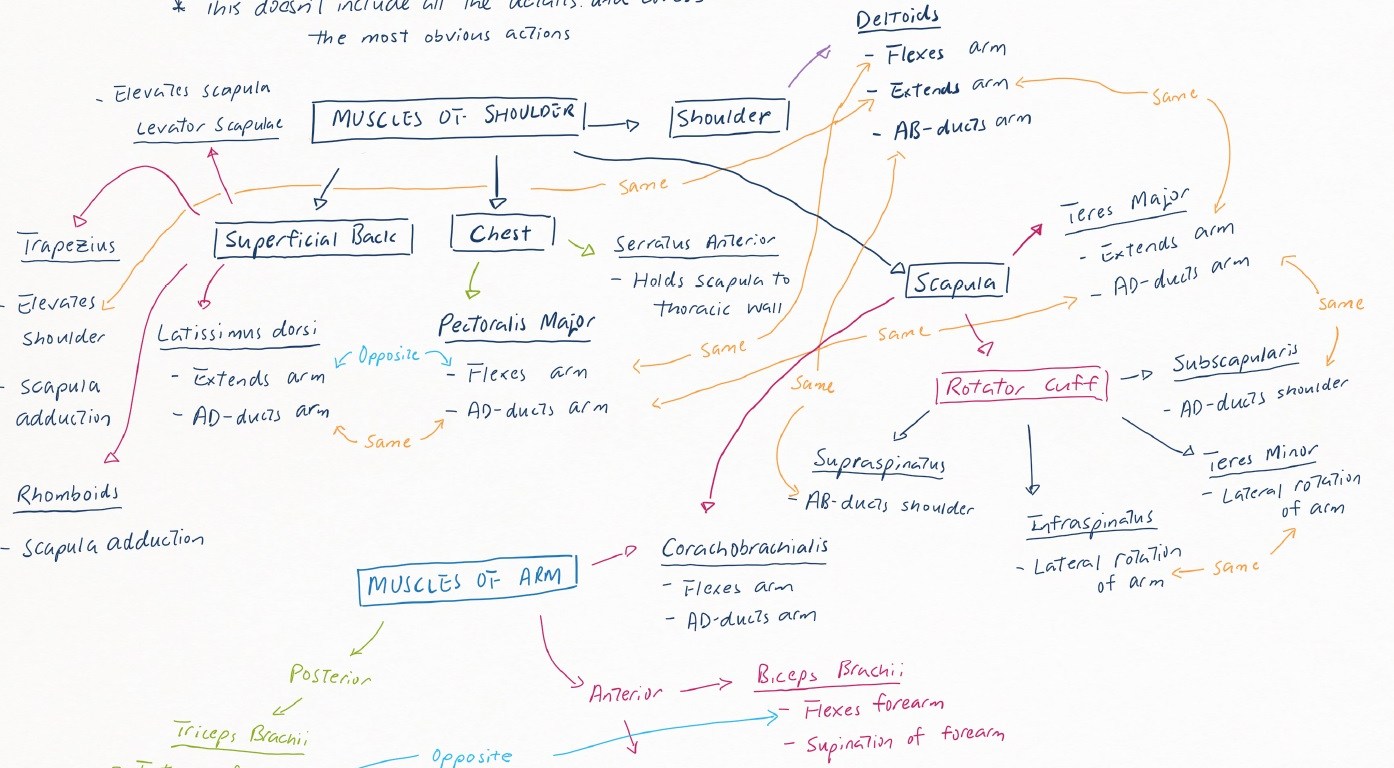 * This doesn't include all the details and
the most obvious actions
Deltoids
- Flexes arm
- Extends arm
- AB-ducts arm
same
- Elevates scapula
Levator Scapulae
MUSCLES OF SHOULDER
Shoulder
same
Trapezius
- Elevates
shoulder
- scapula
adduction
Superficial Back
Chest
Serratus Anterior
- Holds scapula to
thoracic wall
Scapula
Teres Major
- Extends arm
- AD-ducts arm
same
Latissimus dorsi
- Extends arm
- AD-ducts arm
Opposite
same
Pectoralis Major
- Flexes arm
- AD-ducts arm
same
same
same
Rotator Cuff
Subscapularis
- AD-ducts shoulder
Supraspinatus
- AB-ducts shoulder
Teres Minor
- Lateral rotation
of arm
Infraspinatus
- Lateral rotation
of arm
same
Rhomboids
- Scapula adduction
MUSCLES OF ARM
Corachobrachialis
- Flexes arm
- AD-ducts arm
Posterior
Triceps Brachii
Anterior
Biceps Brachii
- Flexes forearm
- Supination of forearm
Opposite